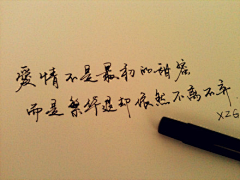 爱情不是最初的甜蜜
而是繁华退却依然不离不弃
XZG